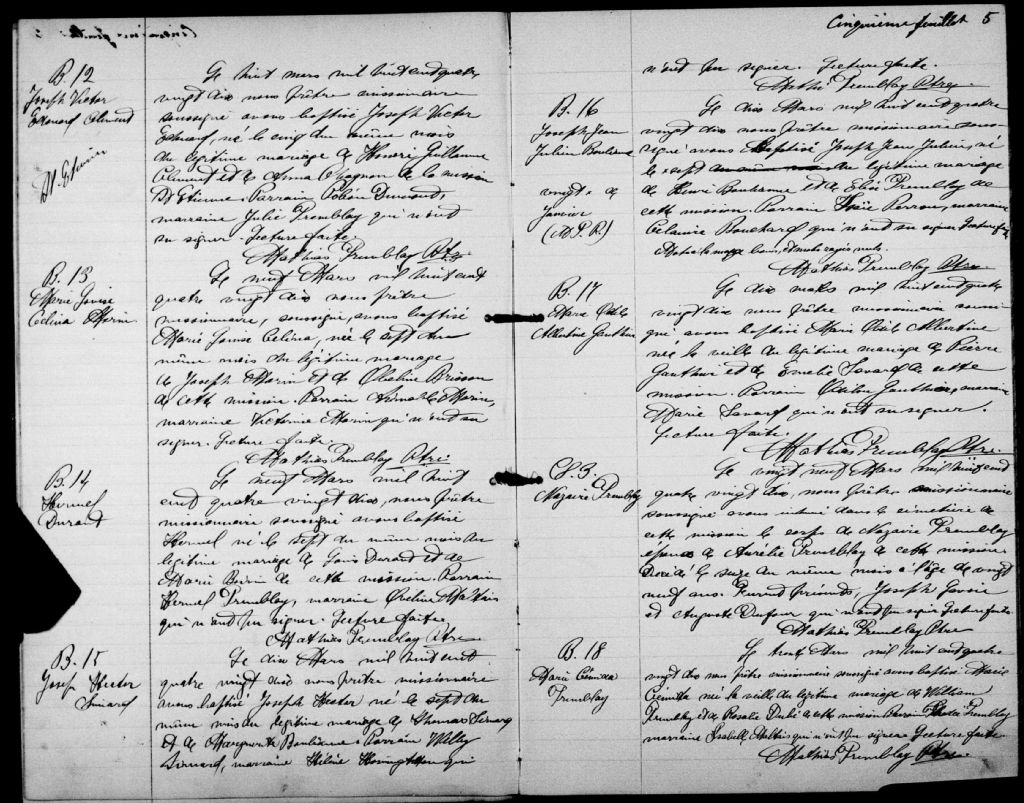 B. 12
Joseph Victor
Edouard Clement
St. Etienne
Le huit mars mil huit cent quatre
vingt dix nous prêtre missionnaire
soussigné avons baptisé Joseph Victor
Edouard, né le cinq du même mois
du légitime mariage de Honoré Guillaume
Clement et de Anna Gagnon de la mission
St Etienne. Parrain Poléon Dumond,
marraine Julie Tremblay qui n'ont
su signer. Lecture faite.
Mathias Tremblay Ptre
B. 13
Marie Louise
Celina Morin
Le neuf Mars mil huit cent
quatre vingt dix nous prêtre
missionnaire, soussigné, avons baptisé
Marie Louise Celina, née le sept du
même mois du légitime mariage
de Joseph Morin et de Obeline Brisson
de cette mission. Parrain Aimable Morin,
marraine Victorine Morin qui n'ont su
signer. Lecture faite.
Mathias Tremblay Ptre
B. 14
Hermel
Durand
Le neuf Mars mil huit
cent quatre vingt dix, nous prêtre
missionnaire soussigné avons baptisé
Hermel né le sept du même mois du
légitime mariage de Louis Durand et de
Marie de cette mission. Parrain
Hermel Tremblay, marraine Mathis
qui n'ont su signer. Lecture faite.
Mathias Tremblay Ptre
B. 15
Joseph Hector
Simard
Le dix Mars mil huit cent
quatre vingt dix nous prêtre missionnaire
avons baptisé Joseph Hector né le sept du
même mois du légitime mariage de Thomas Simard
et de Marguerite Boulianne. Parrain Willy
Simard, marraine Hélène Hovington qui
Cinquième feuillet 5
n'ont su signer. Lecture faite.
Mathias Tremblay Ptre
B. 16
Joseph Jean
Julien Boulianne
vingt de
Janvier
(M.P.R)
Le dix Mars mil huit cent quatre
vingt dix nous prêtre missionnaire sous-
signé avons baptisé Joseph Jean Julien, né
le sept du légitime mariage
de Henri Boulianne et de Tremblay de
cette mission. Parrain Perron, marraine
Bouchard qui n'ont su signer Lecture faite
Mathias Tremblay Ptre
B. 17
Marie
Albertine Gauthier
Le dix mars mil huit cent quatre
vingt dix nous prêtre missionnaire soussi-
gné avons baptisé Marie Albertine
née la veille du légitime mariage de Pierre
Gauthier et de Emelie Savard de cette
mission. Parrain Gauthier, marraine
Marie Savard qui n'ont su signer.
Lecture faite.
Mathias Tremblay Ptre
S. 3.
Nazaire Tremblay
Le vingt neuf Mars mil huit cent
quatre vingt dix, nous prêtre missionnaire
soussigné avons inhumé dans le cimetière de
cette mission le corps de Nazaire Tremblay
époux de Aurélie Tremblay de cette mission
décédé le seize du même mois à l'âge de vingt
neuf ans. Furent présents, Joseph
et Auguste Dufour qui n'ont su signer Lecture faite.
Mathias Tremblay Ptre
B. 18
Marie
Tremblay
Le trente Mars mil huit cent quatre
vingt dix nous prêtre missionnaire soussigné avons baptisé Marie
née la veille du légitime mariage de William
Tremblay et de Rosalie Dubé de cette mission Parrain Tremblay
marraine Isabelle Mathis qui n'ont su signer Lecture faite
Mathias Tremblay Ptre